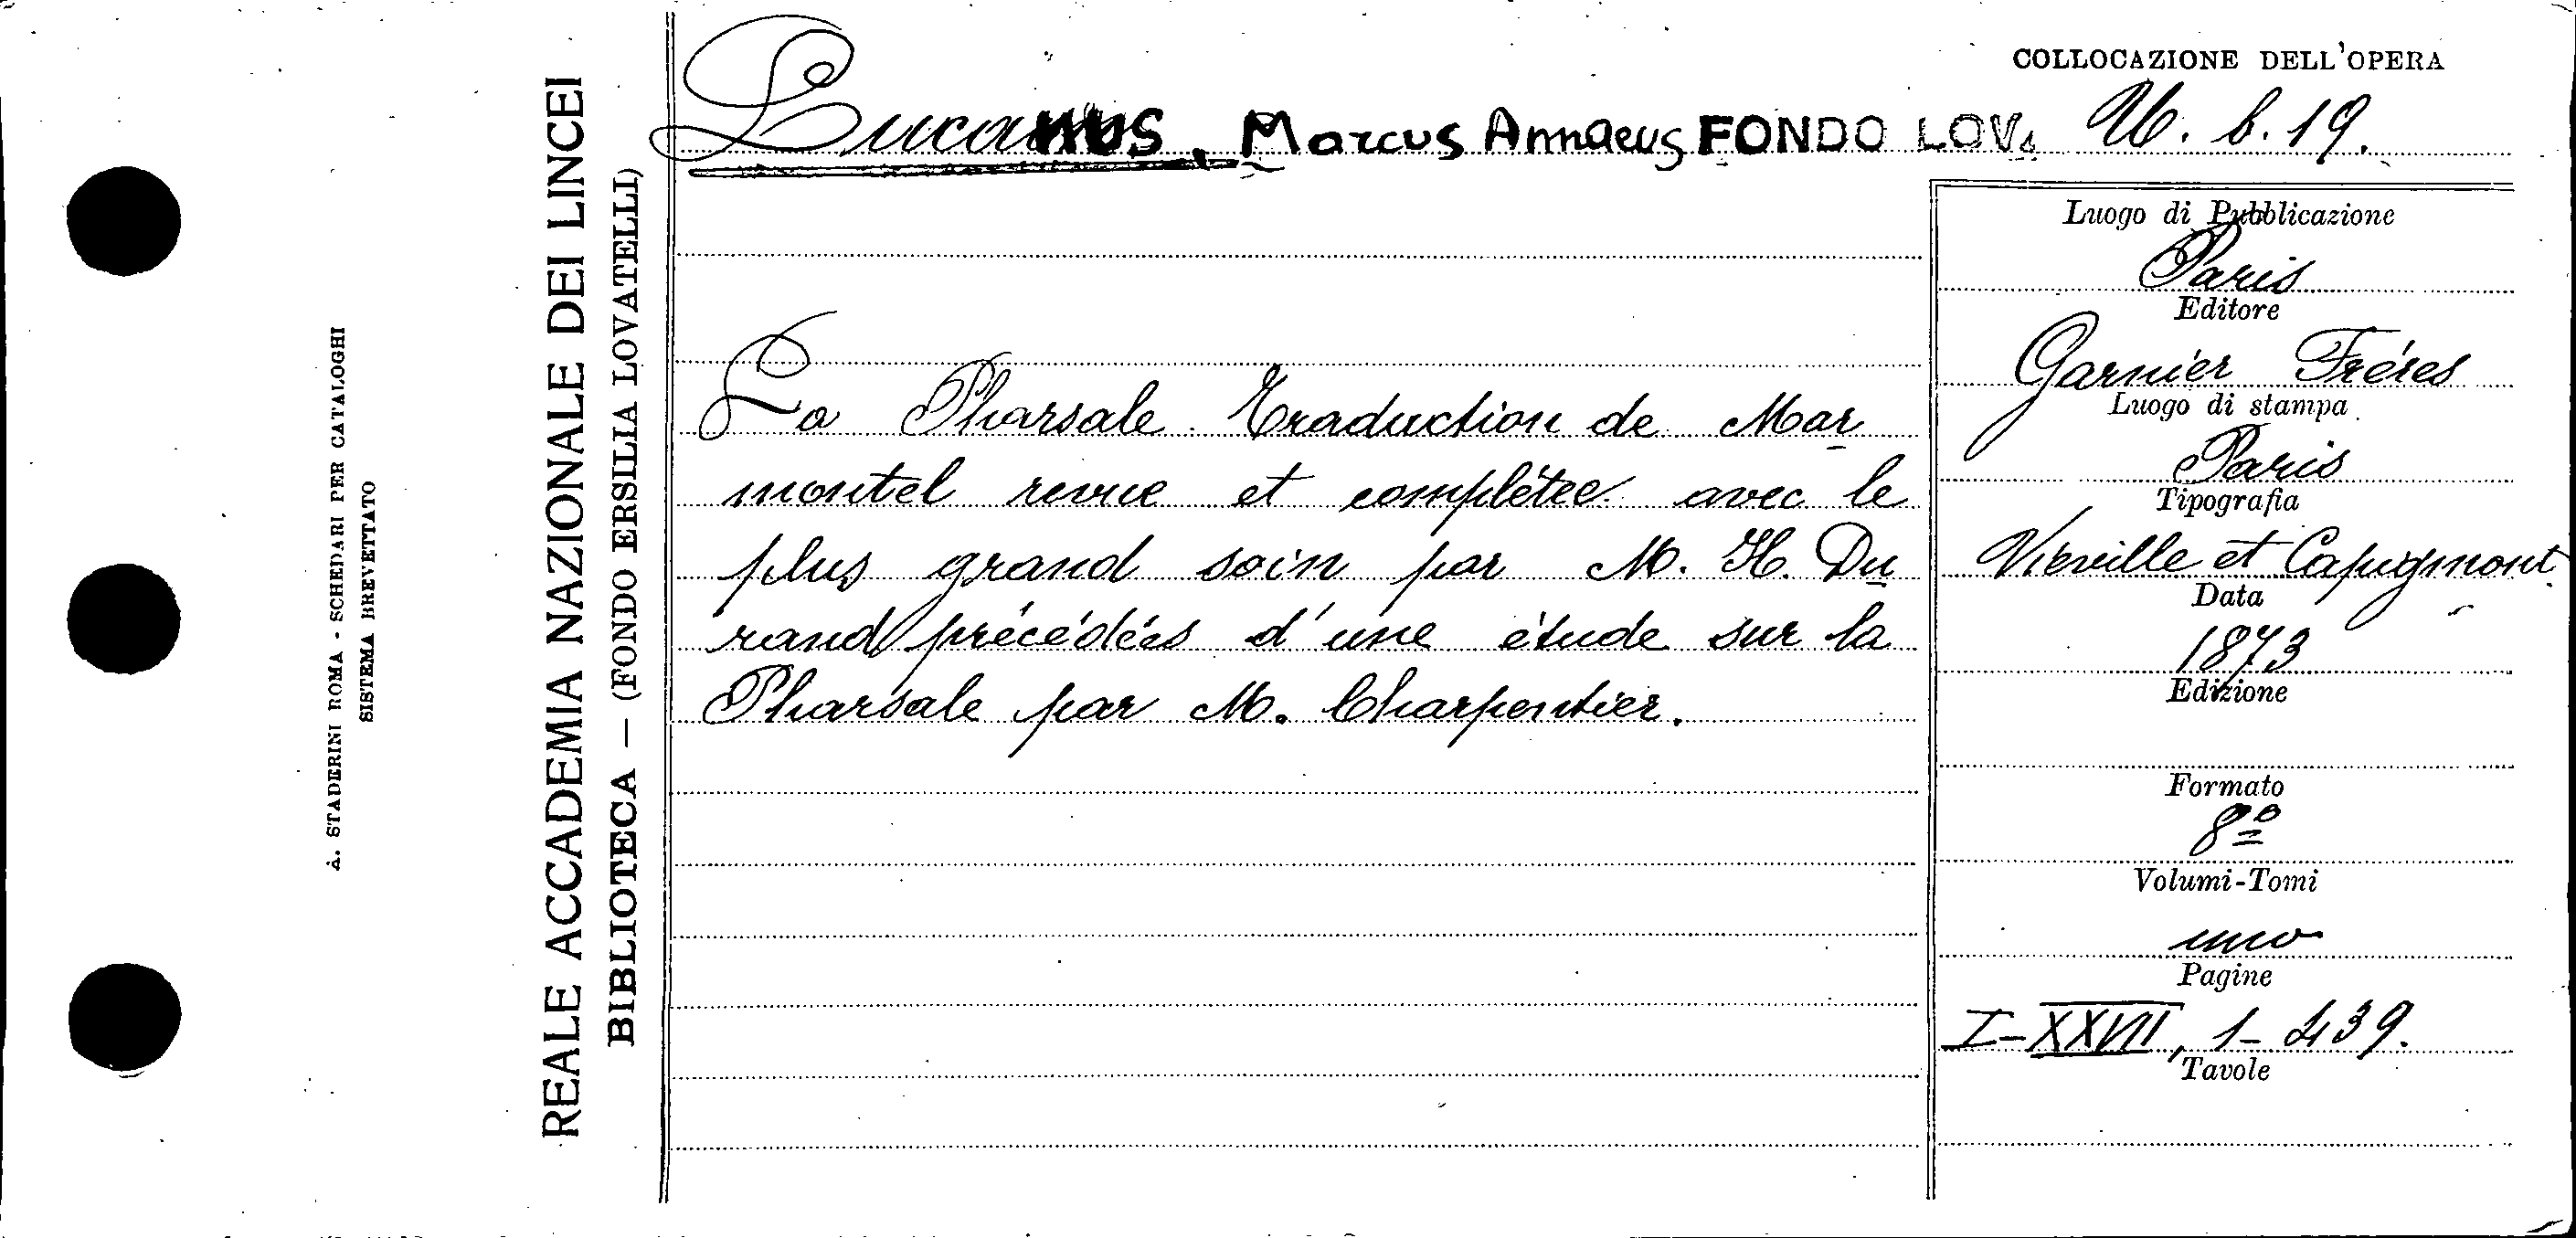 COLLOCAZIONE DELL'OPERA
Lucanus, Marcus Annaeus FONDO LOV. 26. b. 19.
La Pharsale. Traduction de Mar
montel revue et complétee avec le
plus grand soin par M. H. Du
rand précédées d'une étude sur la
Pharsale par M. Charpentier.
Luogo di Pubblicazione
Paris
Editore
Garnier Fréres
Luogo di stampa
Paris
Tipografia
Viéville et Capiomont
Data
1873
Edizione
Formato
8º
Volumi-Tomi
uno
Pagine
I-XXVII, 1-439.
Tavole
REALE ACCADEMIA NAZIONALE DEI LINCEI
BIBLIOTECA — (FONDO ERSILIA LOVATELLI)
A. STADERINI ROMA - SCHEDARI PER CATALOGHI
SISTEMA BREVETTATO